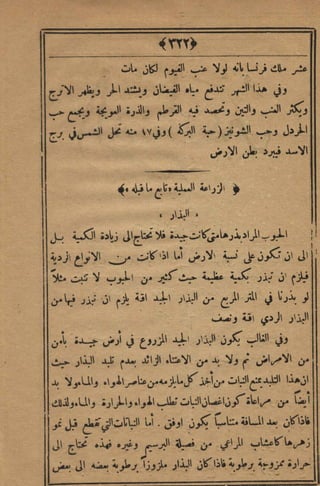 ﴿٣٢٢﴾
عشر ملك فرنسا بانه لولا عنب الفيوم لكان مات
وفي هذا الشهر تندفع مياه الفيضان ويشتد الحر ويظهر الاترج
ويكثر العنب والتين وتحصد فيه القرطم والذرة العويجة ويجمع حب
الخردل وحب الشونيز (حبة البركه) وفي ١٧ منه تحل الشمس في برج
الاسد فيبرد بطن الارض
﴿ الزراعة العملية «تابع ما قبله» ﴾
« البذار »
الحبوب المراد بذرها متى كانت جيدة فلا تحتاج الى زيادة الكمية بل
الى ان تكون على نسبة الارض أما اذا كانت من الانواع الردية
فيلزم ان تبذر بكمية عظيمة حيث كثير من الحبوب لا تنبت مثلاً
لو بذرنا في المتر المربع من البذار الجيد اقة يلزم ان تبذر فيها من
البذار الردي اقة ونصف
وفي الغالب يكون البذار الجيد المزروع في أرض جيدة بأمن
من الامراض ثم ولا بد من الاعتناء الزائد بعدم تلبد البذار حيث
ان هذا التلبد يمنع النبات من أخذ كل ما يلزمه من عناصر الهواء والماء ولا بد
أيضاً من مراعاة كون اغصان النبات تطلب الهواء والحرارة والماء ولذلك
فاذا كان بعد المسافة متناسباً يكون اوفق. أما النباتات التي تقطع قبل نمو
زهرها كاعشاب المراعي من فصيلة البرسيم وغيره فهذه تحتاج الى
حرارة ممزوجة برطوبة فاذا كان البذار ملزوزاً برطوبة بعضه الى بعض